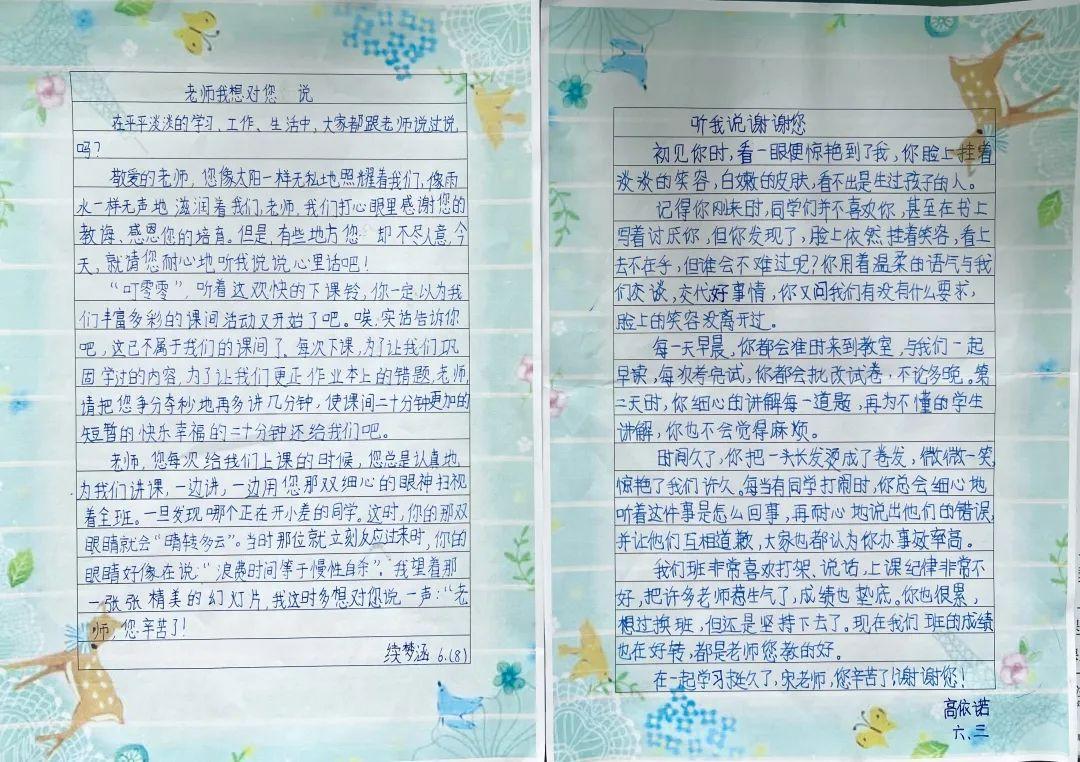 老师我想对您 说
在平平淡淡的学习、工作、生活中，大家都跟老师说过说
吗？
敬爱的老师，您像太阳一样无私地照耀着我们，像雨
水一样无声地 滋润着我们，老师，我们打心眼里感谢您的
教诲、感恩您的培育。但是，有些地方您 却不尽人意，今
天，就请您耐心地听我说说心里话吧！
“叮零零”，听着这欢快的下课铃，你一定以为我
们丰富多彩的课间活动又开始了吧。唉，实话告诉你
吧，这已不属于我们的课间了，每次下课，为了让我们巩
固学过的内容，为了让我们更正作业本上的错题，老师，
请把您争分夺秒地再多讲几分钟，使课间二十分钟更加的
短暂的快乐幸福的二十分钟还给我们吧。
老师，您每次给我们上课的时候，您总是认真地
为我们讲课，一边讲，一边用您那双细心的眼神扫视
着全班。一旦发现哪个正在开小差的同学。这时，你的那双
眼睛就会“晴转多云”。当时那位就立刻反应过来时，你的
眼睛好像在说：“浪费时间等于慢性自杀”。我望着那
一张张精美的幻灯片，我这时多想对您说一声：“老
师，您辛苦了！
续梦涵 6.(8)
听我说谢谢您
初见你时，看一眼便惊艳到了我，你脸上挂着
淡淡的笑容，白嫩的皮肤，看不出是生过孩子的人。
记得你刚来时，同学们并不喜欢你，甚至在书上
写着讨厌你，但你发现了，脸上依然挂着笑容，看上
去不在乎，但谁会不难过呢？你用着温柔的语气与我
们交谈，交代好事情，你又问我们有没有什么要求，
脸上的笑容没离开过。
每一天早晨，你都会准时来到教室，与我们一起
早读，每次考完试，你都会批改试卷，不论多晚。第
二天时，你细心的讲解每一道题，再为不懂的学生
讲解，你也不会觉得麻烦。
时间久了，你把一头长发烫成了卷发，微微一笑，
惊艳了我们许久。每当有同学打闹时，你总会细心地
听着这件事是怎么回事，再耐心地说出他们的错误，
并让他们互相道歉，大家也都认为你办事效率高。
我们班非常喜欢打架、说话，上课纪律非常不
好，把许多老师惹生气了，成绩也垫底。你也很累，
想过换班，但还是坚持下去了。现在我们班的成绩
也在好转，都是老师您教的好。
在一起学习挺久了，宋老师，您辛苦了！谢谢您！
高依诺
六、三